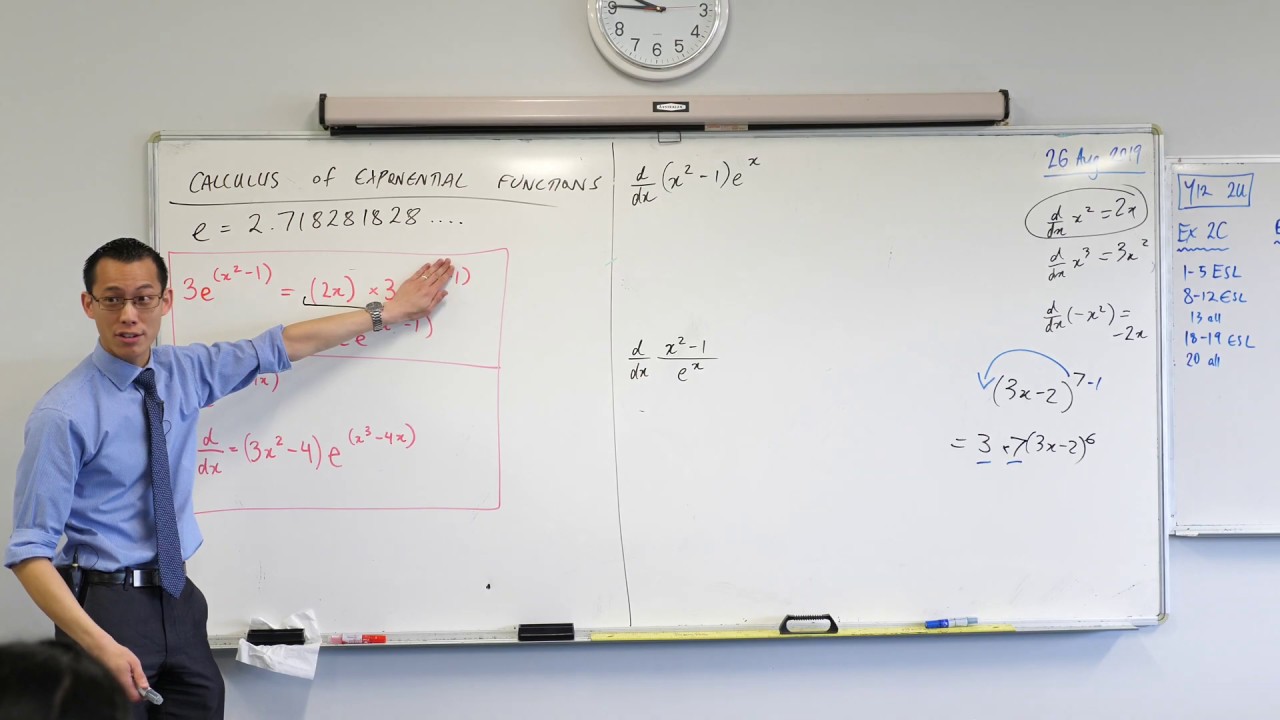 9 3
8 4
7 6 5
CALCULUS of EXPONENTIAL FUNCTIONS
e = 2.718281828 ....
3e^(x²-1) = (2x) × 3 1)
e -1)
x)
d/dx = (3x²-4) e^(x³-4x)
d/dx (x²-1)e^x
d/dx x²-1/e^x
26 Aug 2019
d/dx x² = 2x
d/dx x³ = 3x²
d/dx (-x²) =
-2x
(3x-2)^7-1
= 3 × 7(3x-2)^6
Y12 2U
Ex 2C
1-5 ESL
8-12 ESL
13 all
18-19 ESL
20 all